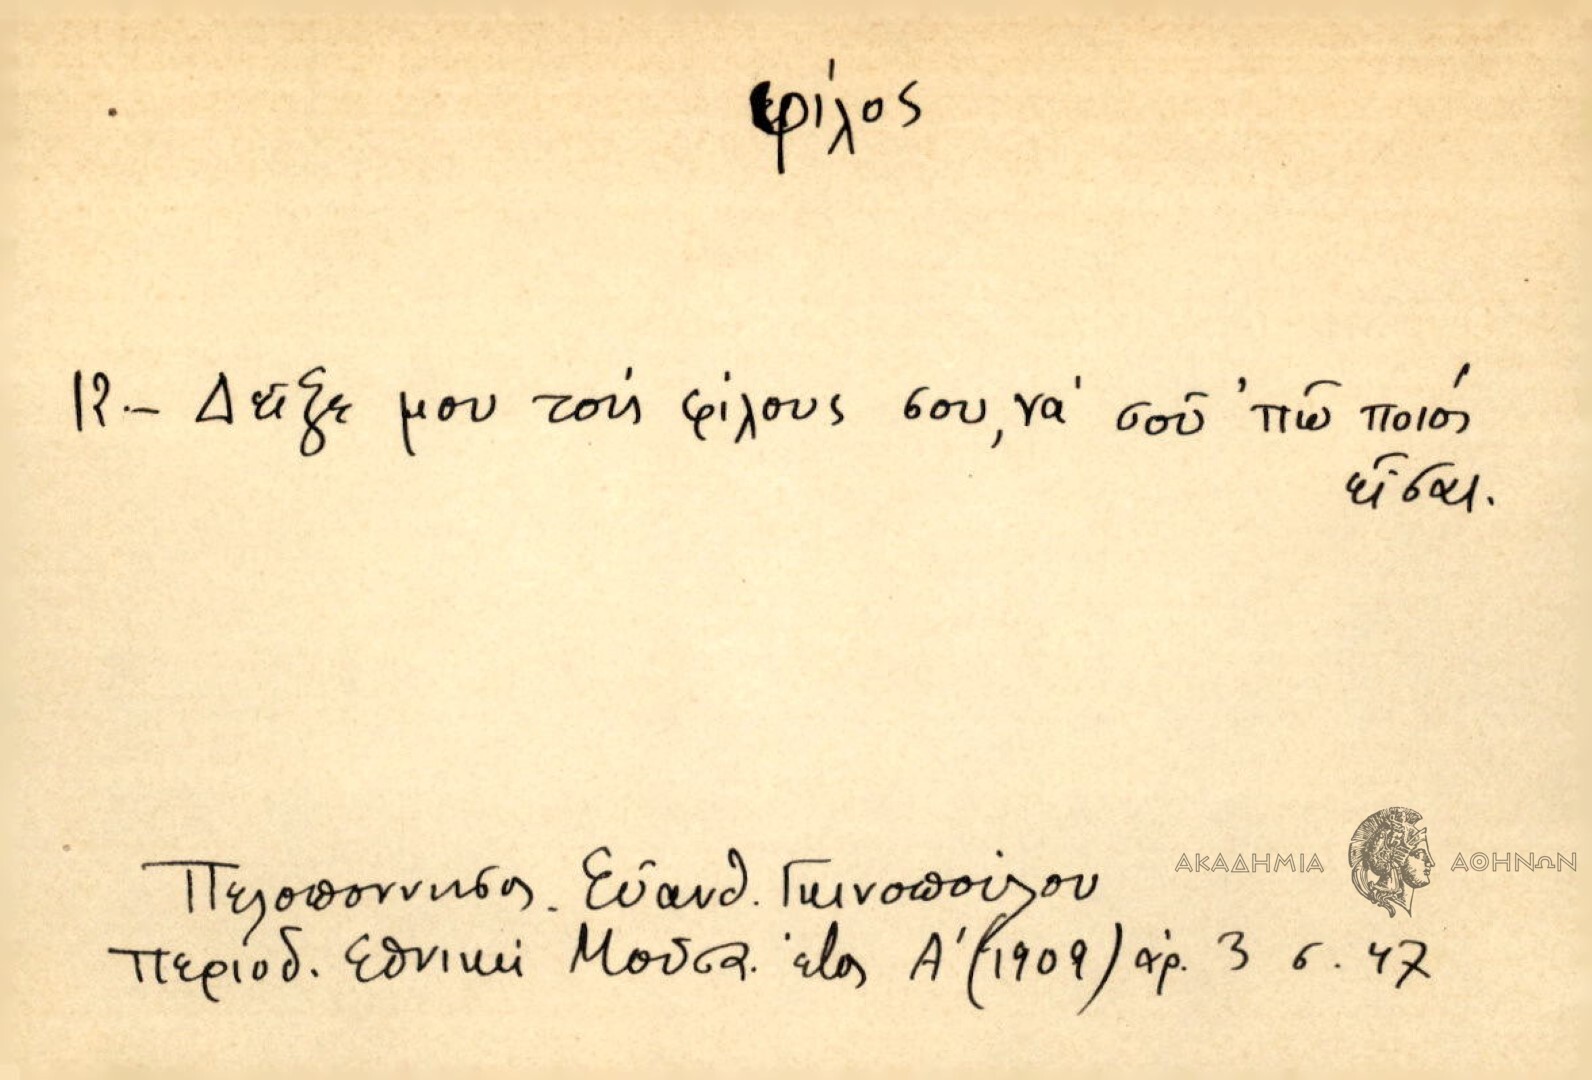 φίλος
12.- Δεῖξε μου τούς φίλους σου, νά σοῦ 'πῶ ποιός
εἶσαι.
ΑΚΑΔΗΜΙΑ ΑΘΗΝΩΝ
Πελοπόννησος. Εὐανθ.
Περίοδ. Εθνική Μοῦσα. ἔτος Α' (1909) ἀρ. 3 σ. 47